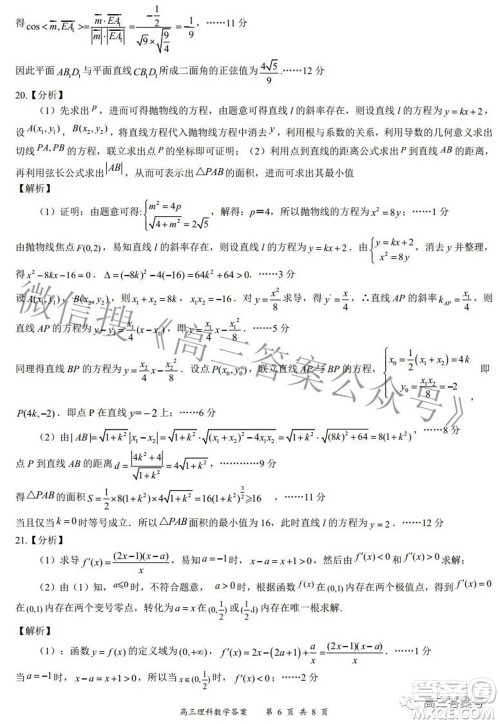 得 cos<m, EA₁> = m·EA₁/(|m|·|EA₁|) = (-1/2)/(√9×√(9/4)) = -1/9, ……11 分
因此平面 AB₁D₁ 与平面直线 CB₁D₁ 所成二面角的正弦值为 4√5/9 .……12 分
20.【分析】
（1）先求出 p，进而可得抛物线的方程，由题意可得直线 l 的斜率存在，则设直线 l 的方程为 y=kx+2，
设 A(x₁,y₁)，B(x₂,y₂)，将直线方程代入抛物线方程中消去 y，利用根与系数的关系，利用导数的几何意义求出
切线 PA,PB 的方程，联立求出点 P 的坐标即可证明；（2）利用点到直线的距离公式求出 P 到直线 AB 的距离，
再利用弦长公式求出 |AB|，从而可表示出 △PAB 的面积，进而可求出其最小值
【解析】
（1）证明：由题意可得: {m²=4p √(4+m²)=2√5，解得：p=4，所以抛物线的方程为 x²=8y；……1 分
由抛物线焦点 F(0,2)，易知直线 l 的斜率存在，则设直线 l 的方程为 y=kx+2．由 {y=kx+2 x²=8y，消去 y 并整理，
得 x²-8kx-16=0．Δ=(-8k)²-4(-16)=64k²+64>0．……2 分
设 A(x₁,y₁)，B(x₂,y₂)，则 x₁+x₂=8k，x₁x₂=-16．对 y=x²/8 求导，得 y'=x/4，∴直线 AP 的斜率 k_AP=x₁/4，则
直线 AP 的方程为 y-y₁=x₁/4(x-x₁)，即 y=x₁/4 x-x₁²/8．……5 分
同理得直线 BP 的方程为 y=x₂/4 x-x₂²/8．设点 P(x₀,y₀)，联立直线 AP 与 BP 的方程，{x₀=1/2(x₁+x₂)=4k y₀=x₁x₂/8=-2 即
P(4k,-2)．即点 P 在直线 y=-2 上；……6 分
（2）由 |AB|=√(1+k²)|x₁-x₂|=√(1+k²)·√((x₁+x₂)²-4x₁x₂)=√(1+k²)·√((8k)²+64)=8(1+k²)，……8 分
点 P 到直线 AB 的距离 d=|4k²+4|/√(1+k²)=4√(1+k²)，…………9 分
得 △PAB 的面积 S=1/2×8(1+k²)×4√(1+k²)=16(1+k²)^(3/2)≥16 ，……11 分
当且仅当 k=0 时等号成立．所以 △PAB 面积的最小值为 16，此时直线 l 的方程为 y=2．……12 分
21.【分析】
（1）求导 f'(x)=(2x-1)(x-a)/x，易知 a=-1 时，x-a=x+1>0，然后由 f'(x)<0 和 f'(x)>0 求解；
（2）由（1）知，a≤0 时，不符合题意，a>0 时，根据 f(x) 在 (0,1) 内存在两个极值点，得到 f'(x)
在 (0,1) 内存在两个变号零点，转化为 a=x 在 (0,1/2)∪(1/2,1) 内存在唯一根求解.
【解析】
（1）：函数 y=f(x) 的定义域为 (0,+∞)，f'(x)=2x-(2a+1)+a/x=(2x-1)(x-a)/x，……1 分
当 a=-1 时，x-a=x+1>0，所以当 x∈(0,1/2) 时，f'(x)<0，
高三理科数学答案 第 6 页 共 8 页
微信搜《高三答案公众号》
高三答案号